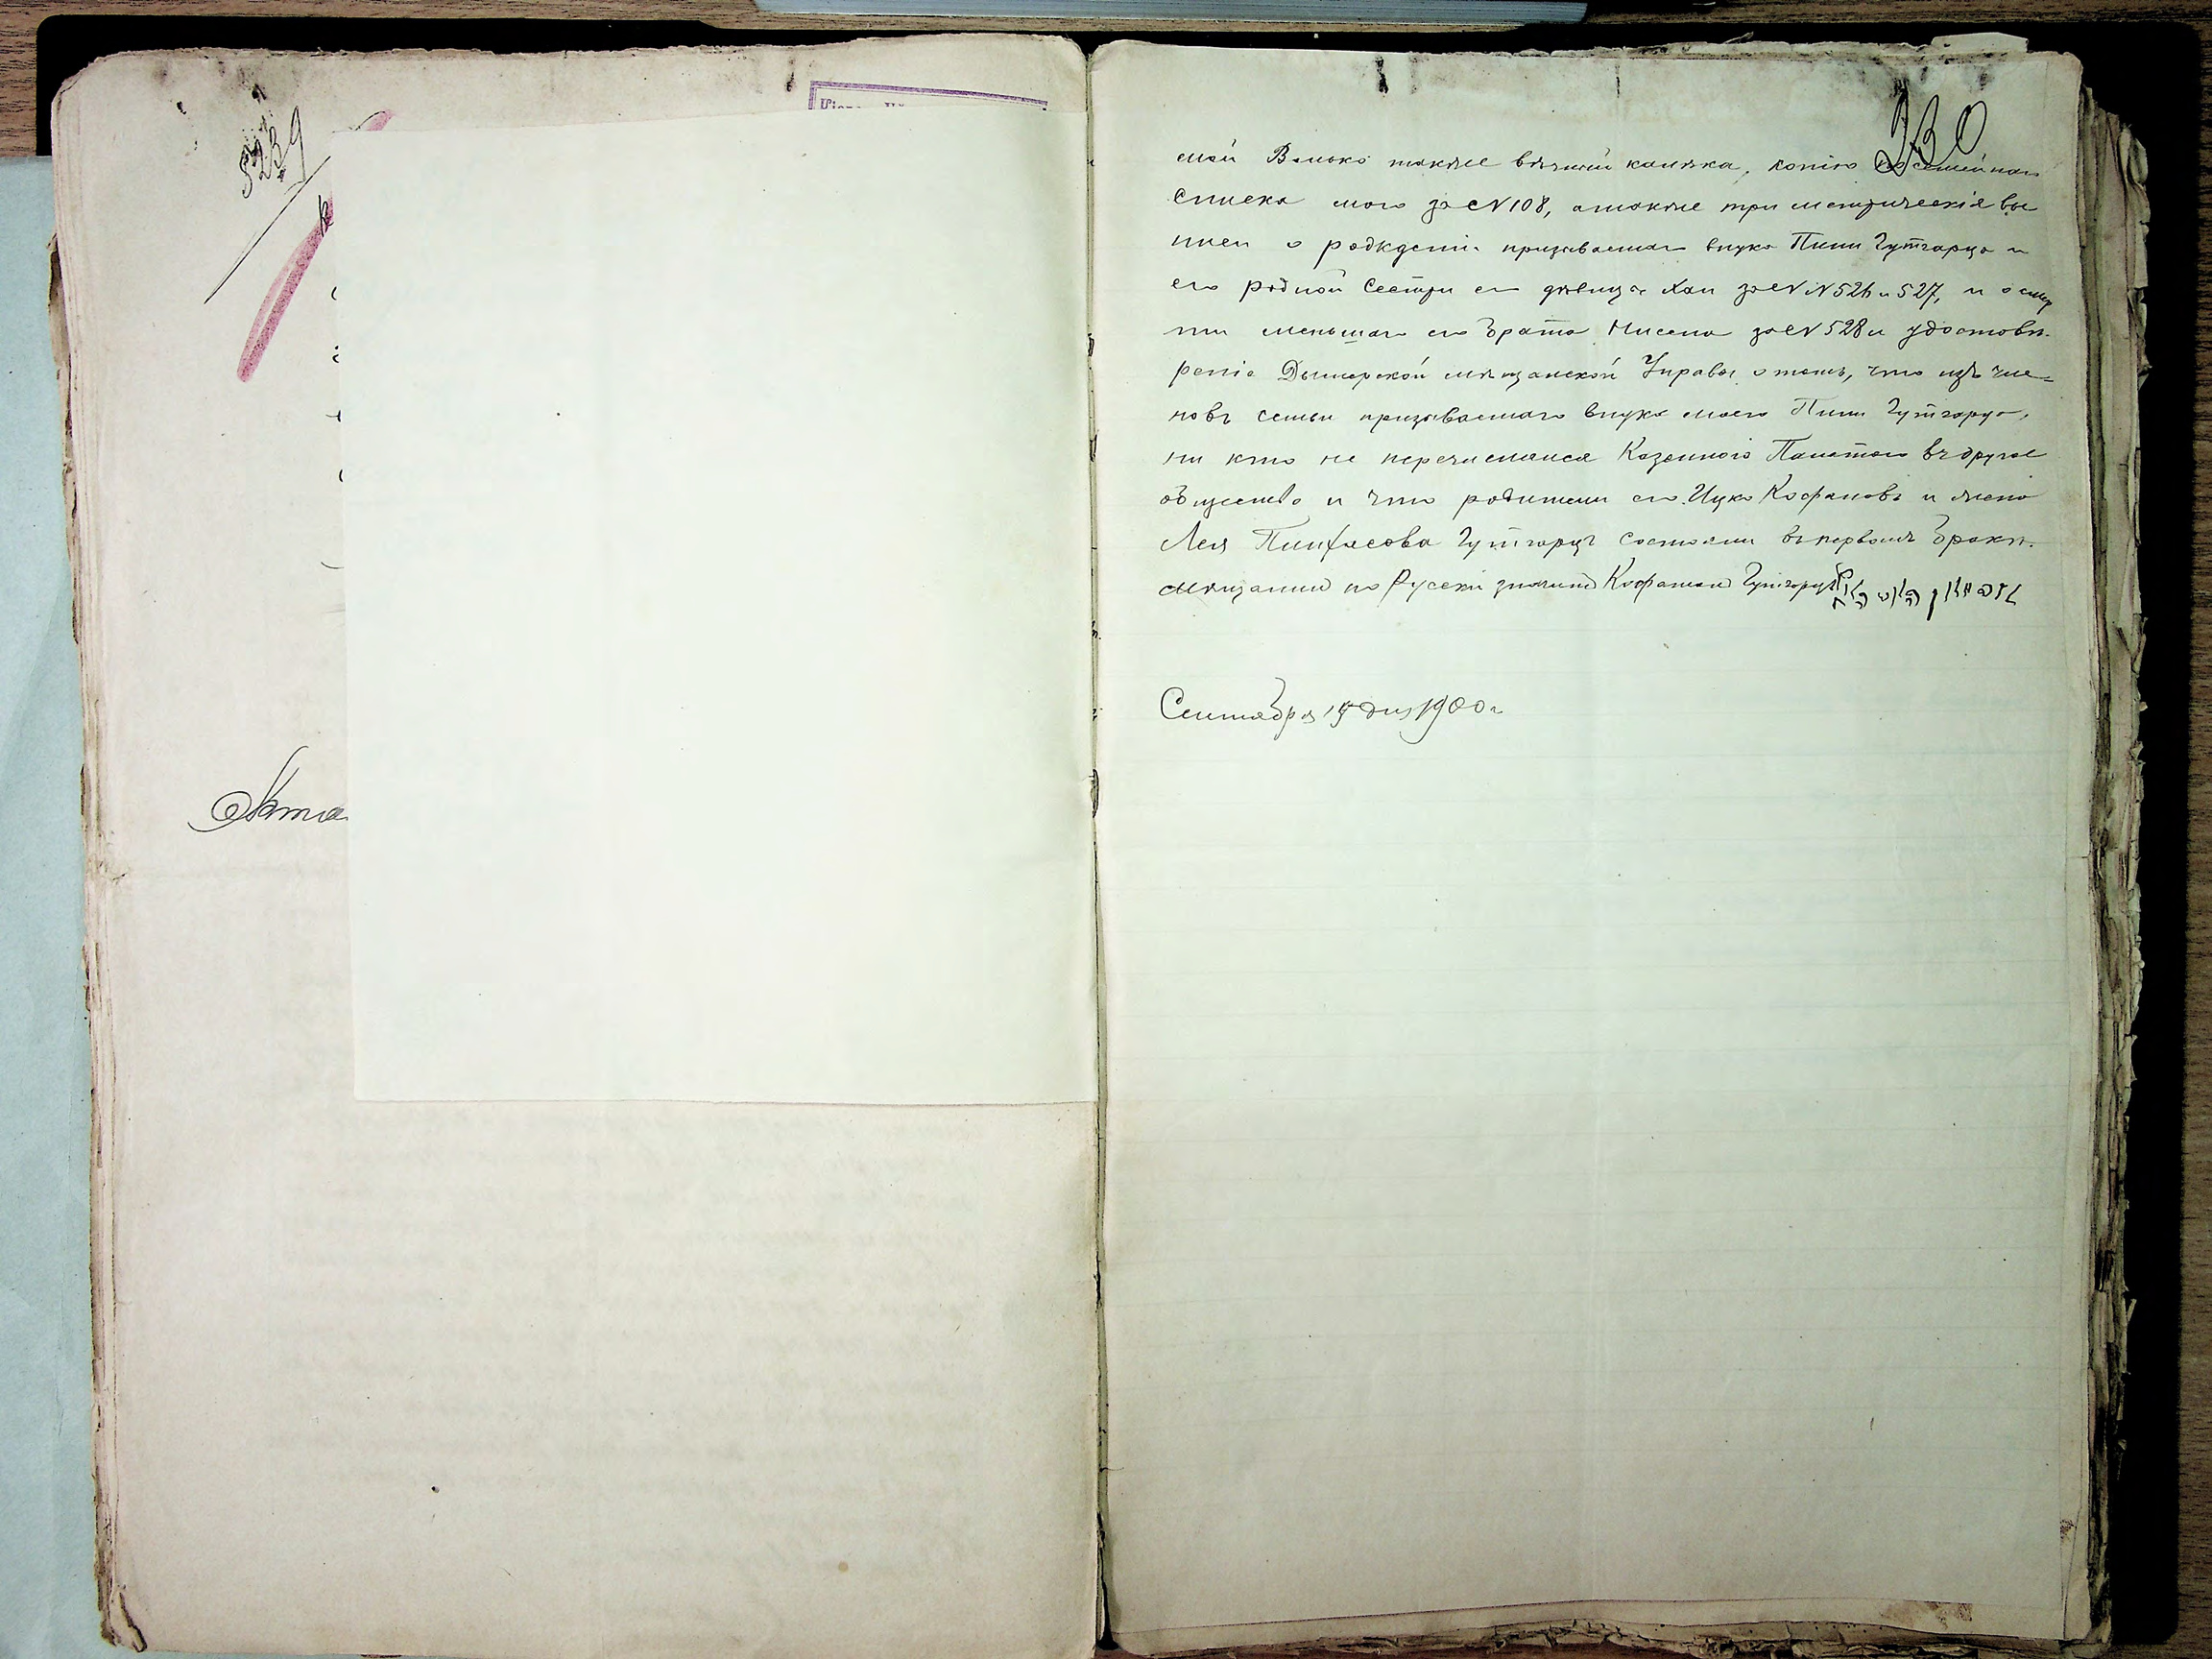 5239
230
мой Волько также вѣчный калѣка, копію посемейнаго
списка моего за №108, атакже три метрическія вы
писи о рожденіи призываемаго внука Пини Гутгарца и
его родной сестры его дѣвицы Хаи за №№526 и 527, и о смер
ти меньшаго его брата Нисена за №528 и удостовѣ-
реніе Дымерской мѣщанской Управы о томъ, что изъ чле-
новъ семьи призываемаго внука моего Пини Гутгарца,
ни кто не перечислялся Казенною Палатою въ другое
общество и что родители его Ицко Кофмановъ и жена
Лея Пинхасова Гутгарцъ состояли въ первомъ бракѣ.
Мѣщанинъ по Русски значитъ Кофманъ Гутгарцъ
Сентября 15 дня 1900 г
Акта